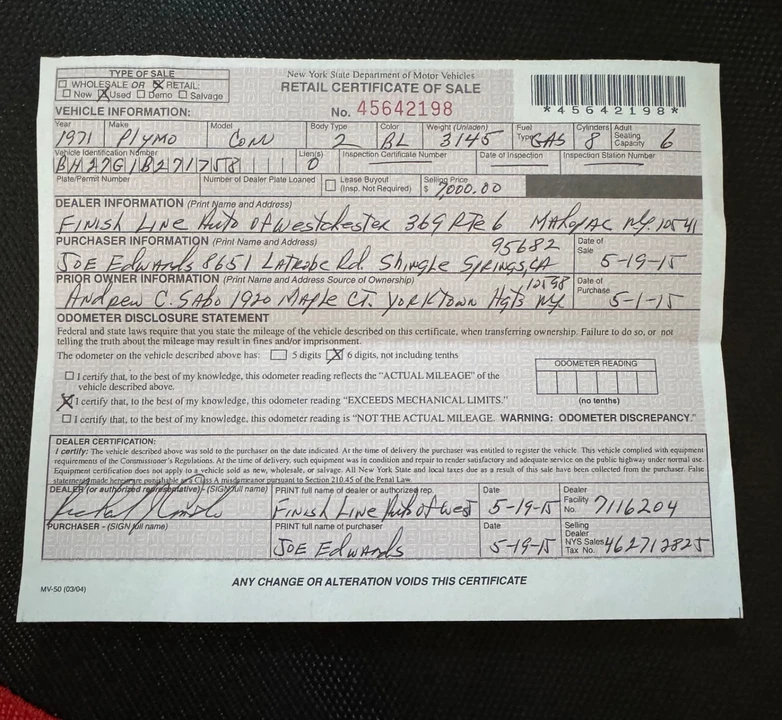 TYPE OF SALE
☐ WHOLESALE OR ☒ RETAIL:
☐ New ☒ Used ☐ Demo ☐ Salvage
New York State Department of Motor Vehicles
RETAIL CERTIFICATE OF SALE
No. 45642198
*45642198*
VEHICLE INFORMATION:
Year Make Model Body Type Color Weight (Unladen) Fuel Type Cylinders Adult Seating Capacity
1971 Plymo Conv 2 BL 3145 GAS 8 6
Vehicle Identification Number Lien(s) Inspection Certificate Number Date of Inspection Inspection Station Number
0
Plate/Permit Number Number of Dealer Plate Loaned ☐ Lease Buyout (Insp. Not Required) Selling Price
$ 7000.00
DEALER INFORMATION (Print Name and Address)
Finish Line Auto Of Westchester 369 RTE 6 Mahopac NY. 10541
PURCHASER INFORMATION (Print Name and Address) 95682 Date of Sale
JOE Edwards 8651 LATrobe Rd. Shingle Springs, CA 5-19-15
PRIOR OWNER INFORMATION (Print Name and Address Source of Ownership) 10598 Date of Purchase
Andrew C. Sabo 1920 Maple CT. YORKTOWN HgTS NY 5-1-15
ODOMETER DISCLOSURE STATEMENT
Federal and state laws require that you state the mileage of the vehicle described on this certificate, when transferring ownership. Failure to do so, or not
telling the truth about the mileage may result in fines and/or imprisonment.
The odometer on the vehicle described above has: ☐ 5 digits ☒ 6 digits, not including tenths
ODOMETER READING
(no tenths)
☐ I certify that, to the best of my knowledge, this odometer reading reflects the "ACTUAL MILEAGE" of the
vehicle described above.
☒ I certify that, to the best of my knowledge, this odometer reading "EXCEEDS MECHANICAL LIMITS."
☐ I certify that, to the best of my knowledge, this odometer reading is "NOT THE ACTUAL MILEAGE. WARNING: ODOMETER DISCREPANCY."
DEALER CERTIFICATION:
I certify: The vehicle described above was sold to the purchaser on the date indicated. At the time of delivery the purchaser was entitled to register the vehicle. This vehicle complied with equipment
requirements of the Commissioner's Regulations. At the time of delivery, such equipment was in condition and repair to render satisfactory and adequate service on the public highway under normal use.
Equipment certification does not apply to a vehicle sold as new, wholesale, or salvage. All New York State and local taxes due as a result of this sale have been collected from the purchaser. False
statements made herein are punishable as a Class A misdemeanor pursuant to Section 210.45 of the Penal Law.
DEALER (or authorized representative) - (SIGN full name) PRINT full name of dealer or authorized rep. Date Dealer Facility No.
Finish Line Auto Of West 5-19-15 7116204
PURCHASER - (SIGN full name) PRINT full name of purchaser Date Selling Dealer NYS Sales Tax No.
JOE Edwards 5-19-15 462712825
MV-50 (03/04)
ANY CHANGE OR ALTERATION VOIDS THIS CERTIFICATE